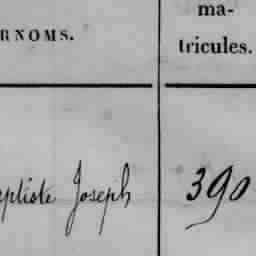 RNOMS.
ma-
tricules.
eptiste Joseph 390